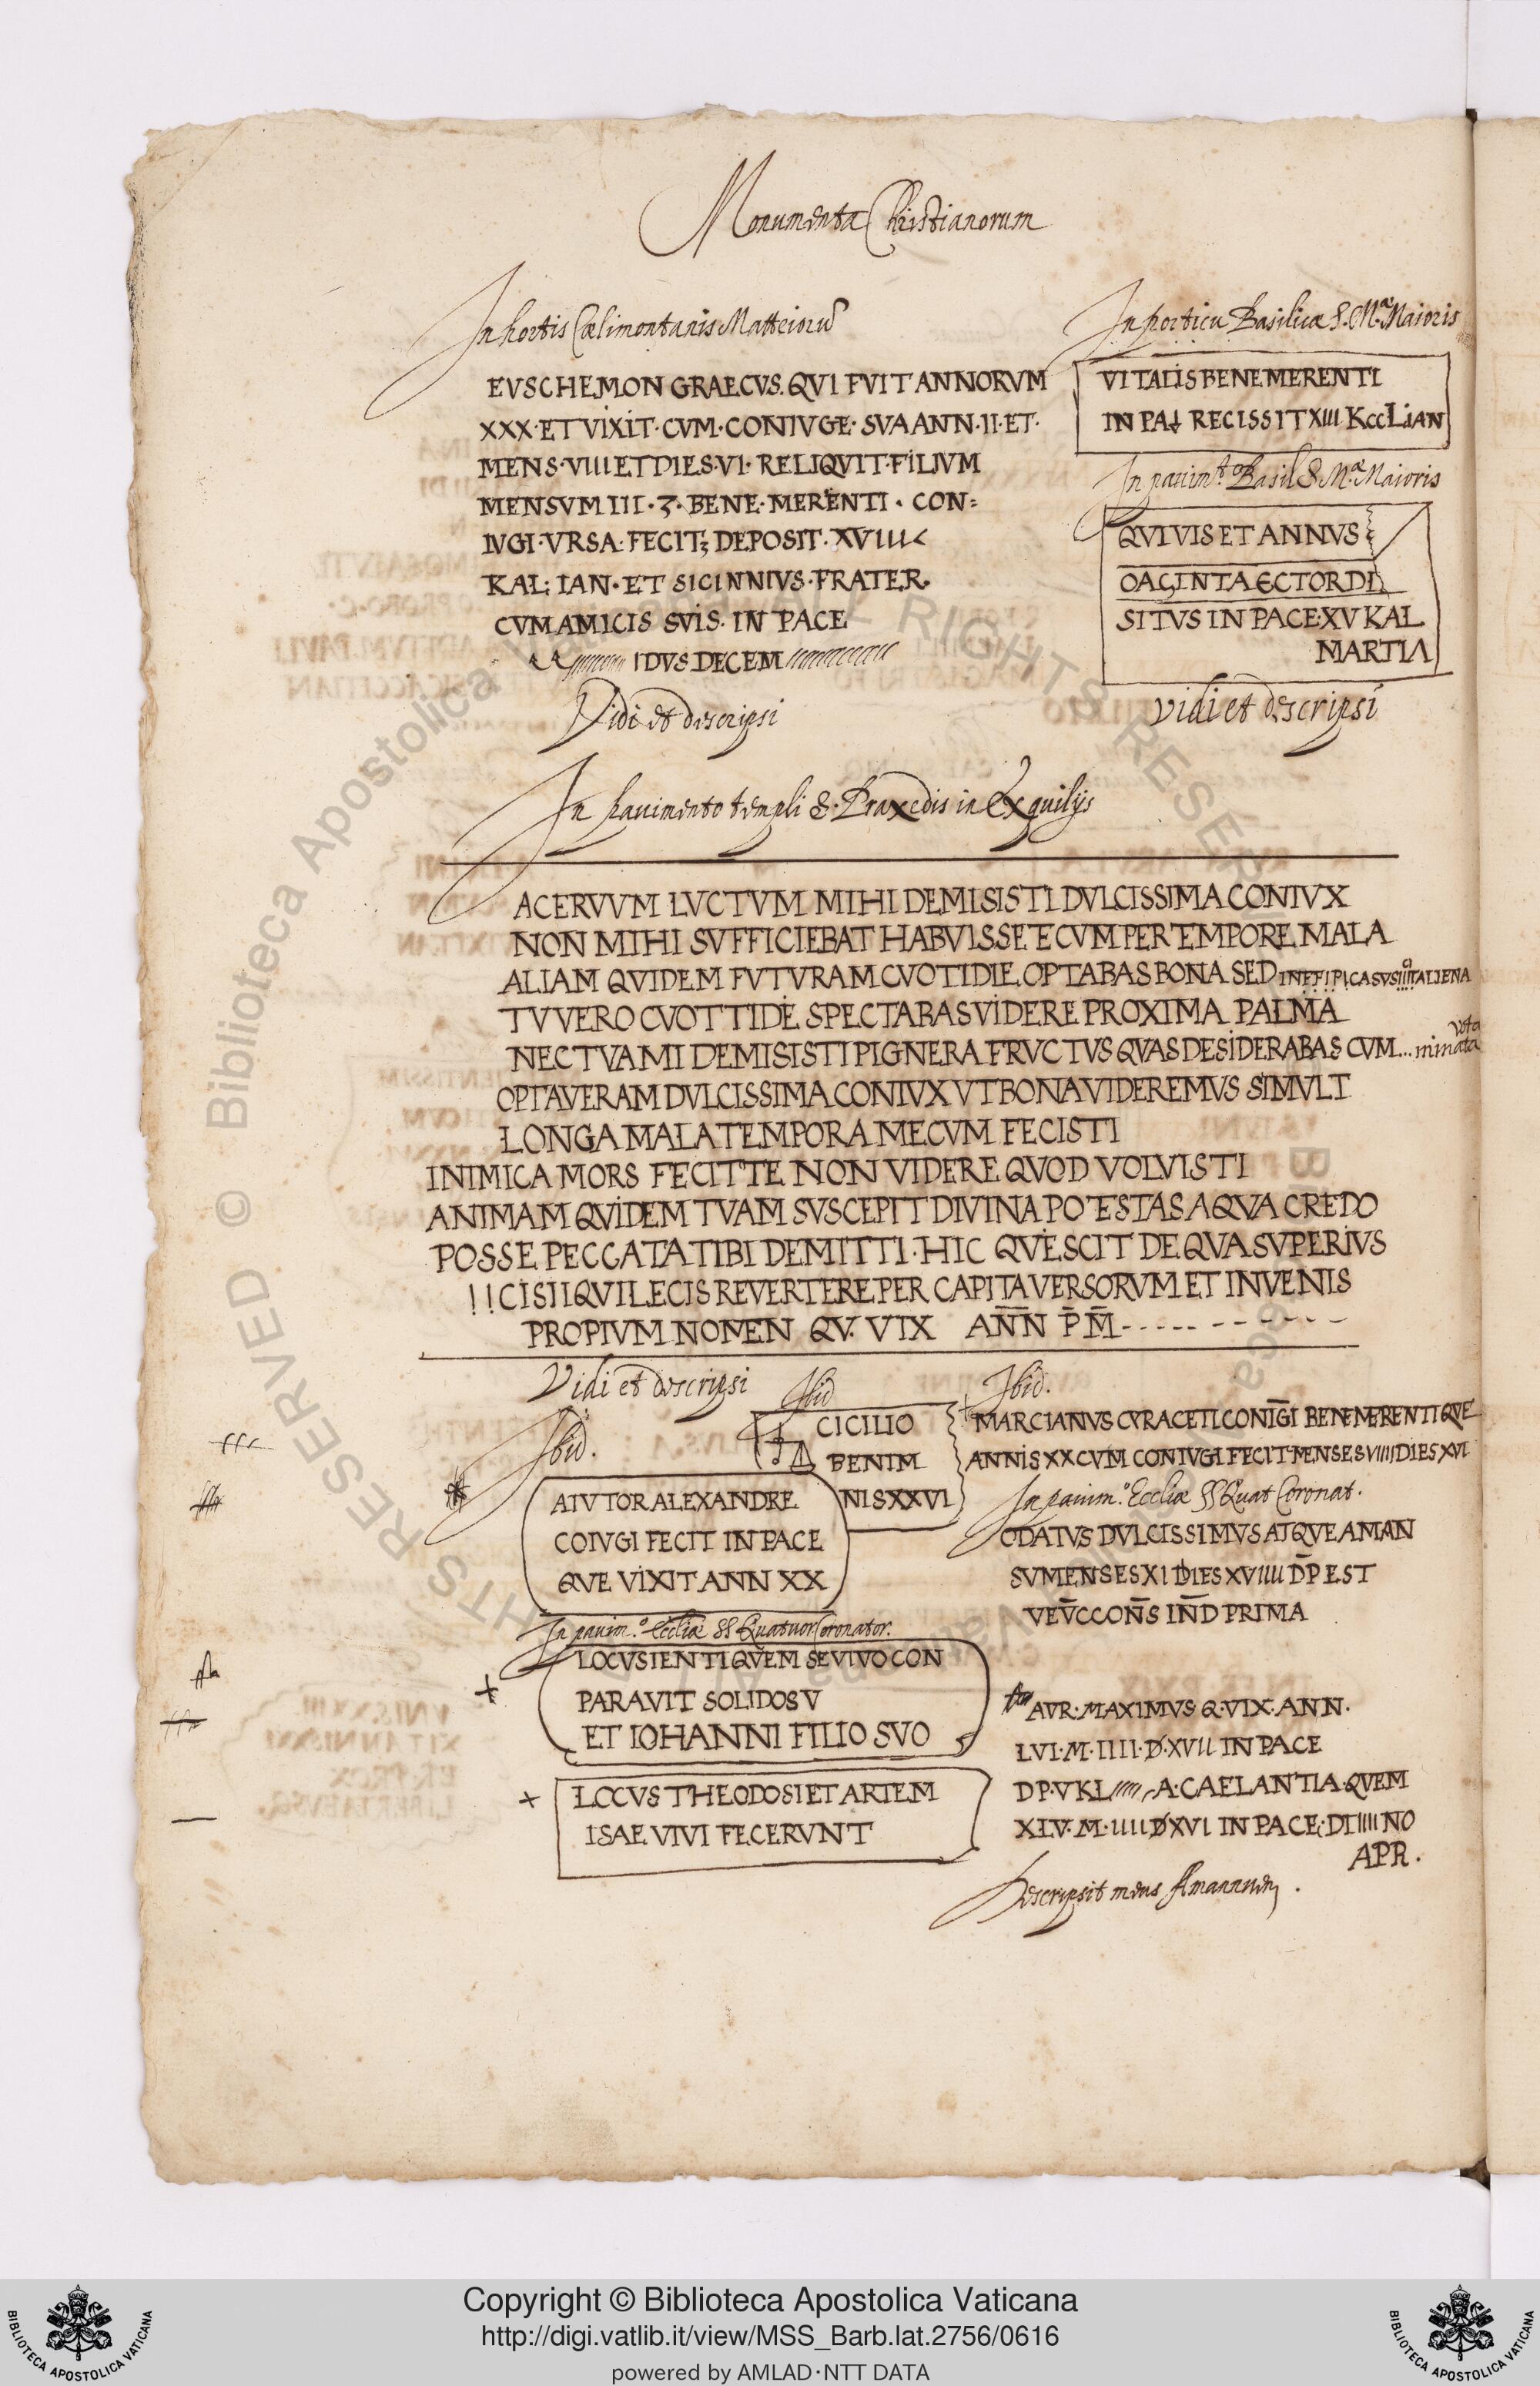 Monumenta Christianorum
In hortis Cœlimontanis Matteiorũ
EVSCHEMON GRAECVS. QVI FVIT ANNORVM
XXX·ET VIXIT·CVM·CONIVGE·SVA ANN·II·ET·
MENS·VIIII ET DIES·VI·RELIQVIT·FILIVM
MENSVM III·3·BENE·MERENTI·CON=
IVGI·VRSA·FECIT; DEPOSIT·XVIIII<
KAL; IAN·ET SICINNIVS·FRATER·
CVM AMICIS SVIS·IN PACE
IDVS DECEM
Vidi et descripsi
In porticu Basilicæ S. M.æ Maioris
VITALIS BENEMERENTI
RECISSIT XIII
In pauim.to Basil S M.æ Maioris
QVI VIS ET ANNVS
OAGINTA ECTOR DI
SITVS IN PACE·XV KAL
MARTIA
vidi et descripsi
In pauimento templi S. Praxedis in Exquilijs
ACERVVM LVCTVM MIHI DEMISISTI DVLCISSIMA CONIVX
NON MIHI SVFFICIEBAT HABVISSE TECVM PER TEMPORE MALA
ALIAM QVIDEM FVTVRAM CVOTIDIE OPTABAS BONA SED
TV VERO CVOTTIDE SPECTABAS VIDERE PROXIMA PALMA
NEC TVA MI DEMISISTI PIGNERA FRVCTVS QVAS DESIDERABAS CVM...
OPTAVERAM DVLCISSIMA CONIVX VT BONA VIDEREMVS SIMVL T
LONGA MALA TEMPORA MECVM FECISTI
INIMICA MORS FECIT TE NON VIDERE QVOD VOLVISTI
ANIMAM QVIDEM TVAM SVSCEPIT DIVINA POTESTAS A QVA CREDO
POSSE PECCATA TIBI DEMITTI·HIC QVESCIT DE QVA SVPERIVS
!!CISII QVI LECIS REVERTERE PER CAPITA VERSORVM ET INVENIS
PROPIVM NOMEN QV. VIX ANN P M
Vidi et descripsi
Ibid
CICILIO
BENEM
NIS XXVI
Ibid.
MARCIANVS CVRACETI CONIGI BENEMERENTI QVE
ANNIS XX CVM CONIVGI FECIT MENSES VIIII DIES XVI
Ibid.
AIVTOR ALEXANDRE
COIVGI FECIT IN PACE
QVE VIXIT ANN XX
In pauim.o Eccliæ SS Quat Coronat.
ODATVS DVLCISSIMVS ATQVE AMAN
SVMENSES XI DIES XVIIII DP EST
VEVCCONS IND PRIMA
In pauim.o Eccliæ SS Quatuor Coronator.
LOCVS IENTI QVEM SE VIVO CON
PARAVIT SOLIDOS V
ET IOHANNI FILIO SVO
LOCVS THEODOSI ET ARTEM
ISAE VIVI FECERVNT
AVR·MAXIMVS Q·VIX·ANN·
LVI·M·IIII·D·XVII IN PACE
DP·V KL A·CAELANTIA·QVEM
XLV·M·IIII D XVI IN PACE·D IIIII NO
APR.
Descripsit meus Amannuen.
Copyright © Biblioteca Apostolica Vaticana
http://digi.vatlib.it/view/MSS_Barb.lat.2756/0616
powered by AMLAD·NTT DATA